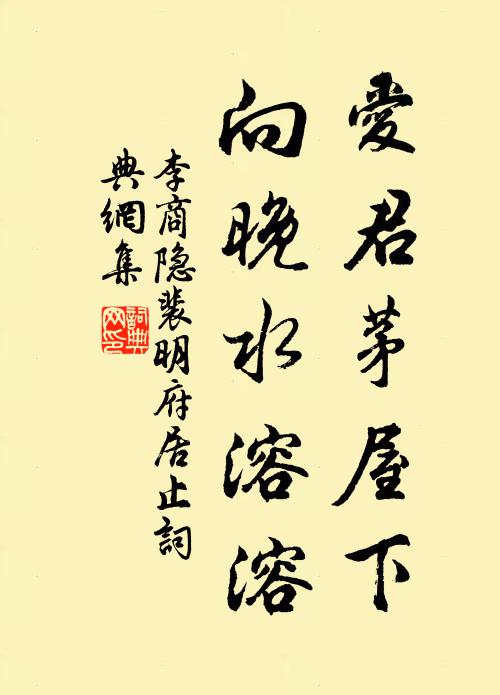 愛君茅屋下
向晚水溶溶
李商隐裴明府居止詞
典網集
詞典
网印